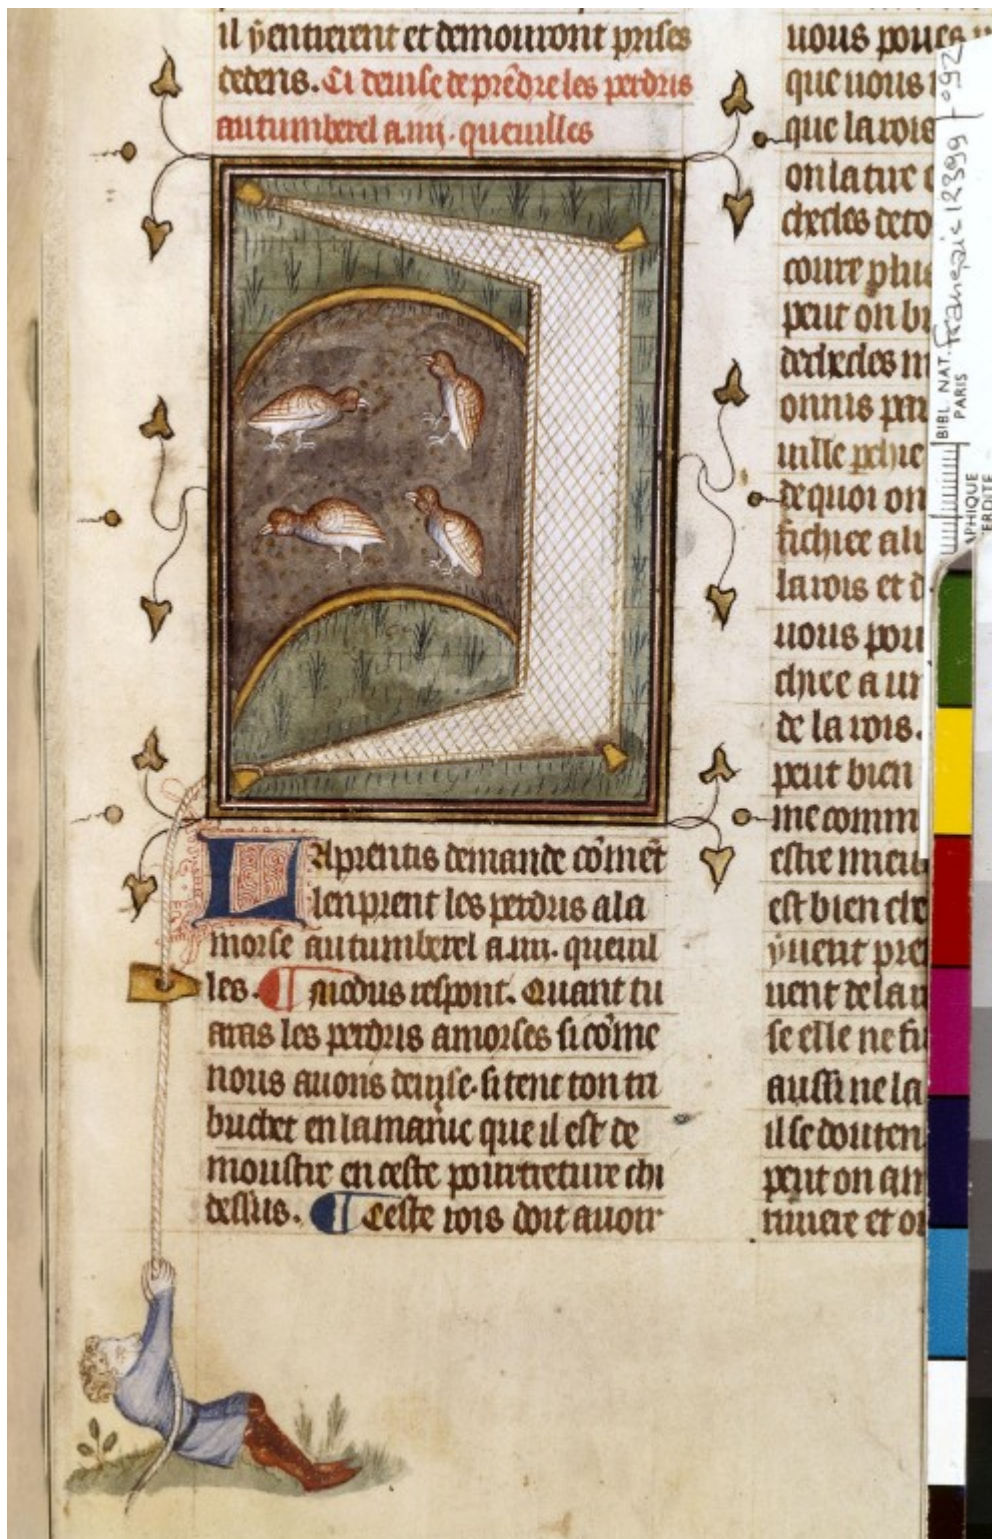 il ÿentrerent et demourront prises
dedens. Ci deuise de prēdre les perdris
au tumberel a .iiij. queuilles
Laprentis demande cōmēt
len prent les perdris a la
morse au tumberel a .iiij. queuil
les. modus respont. Quant tu
aras les perdris amorses si cōme
nous auons deuise. si tent ton tu
buchet en la manie que il est de
moustre en ceste pourtreture chi
dessus. Ceste rois doit auoir
uous poues
que uous
que la rois
on la tire
coure plus
peut on
onnis par
uille
de quoi on
fichiee a
la rois et
uous pou
chiee a un
de la rois.
peut bien
me comm
estre mieu
est bien
ÿuent
uent de la
se elle ne
aussi ne la
il se douten
peut on
riuiere et
Français 12399 - 092
BIBL. NAT.
PARIS
APHIQUE
ERDITE